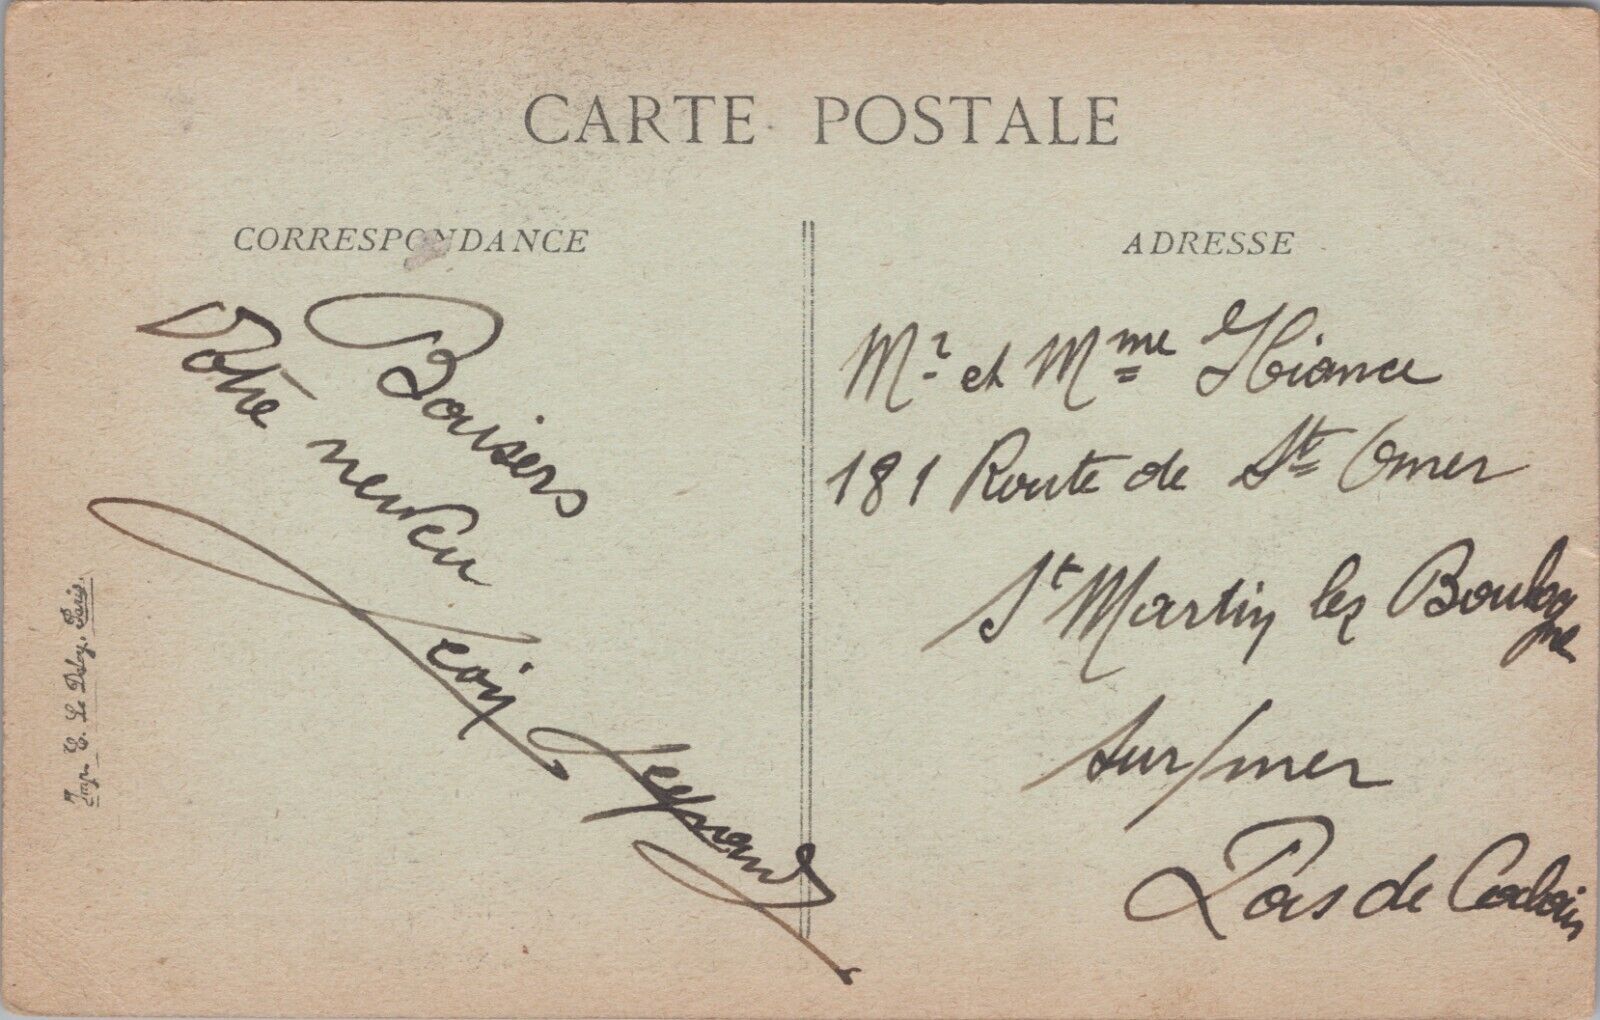 CARTE POSTALE
CORRESPONDANCE
Baisers
Votre neveu
Léon
ADRESSE
Mr et Mme
181 Route de St Omer
St Martin lez Boulogne
sur/mer
Pas de Calais
Imp. E. Le Deley, Paris